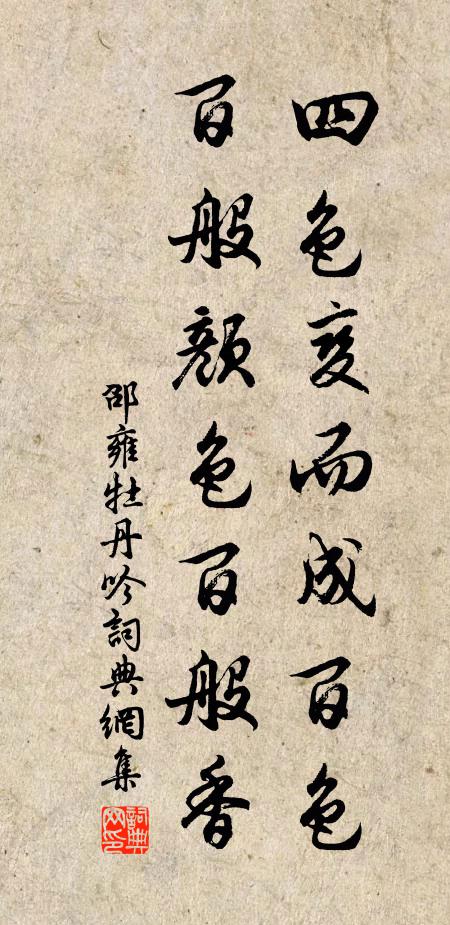 四色变而成百色
百般颜色百般香
邵雍牡丹吟詞典網集
詞典网印